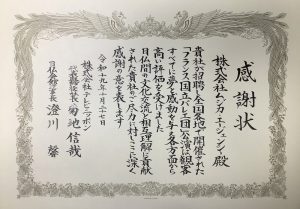 感謝状
株式会社ムジカ・エージェンシィ殿
貴社が招聘し全国各地で開催された
「フランス国立バレエ団」公演は観客
すべてに夢と感動を与え各方面から
高い評価を受けました
日仏間の文化交流と相互理解に貢献
された貴社のご尽力に対しここに深く
感謝の意を表します
株式会社テレビニッポン
代表取締役社長 菊池信哉
日仏会館会長 澄川馨